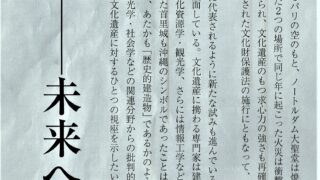 パリの空のもと、ノートルダム大聖堂は焼
た2つの場所で同じ年に起こった火災は衝撃
られ、文化遺産のもつ求心力の強さも再確
された文化財保護法の施行にともなって、
に代表されるように新たな試みも進んでい
面している。文化遺産に携わる専門家は建
化資源学、観光学、さらには情報工学など
た首里城も沖縄のシンボルであったことは
、あたかも「歴史的建造物」であるかのよ
光学、社会学などの関連分野からの批判的
文化遺産に対するひとつの視座を示したい
――未来へ